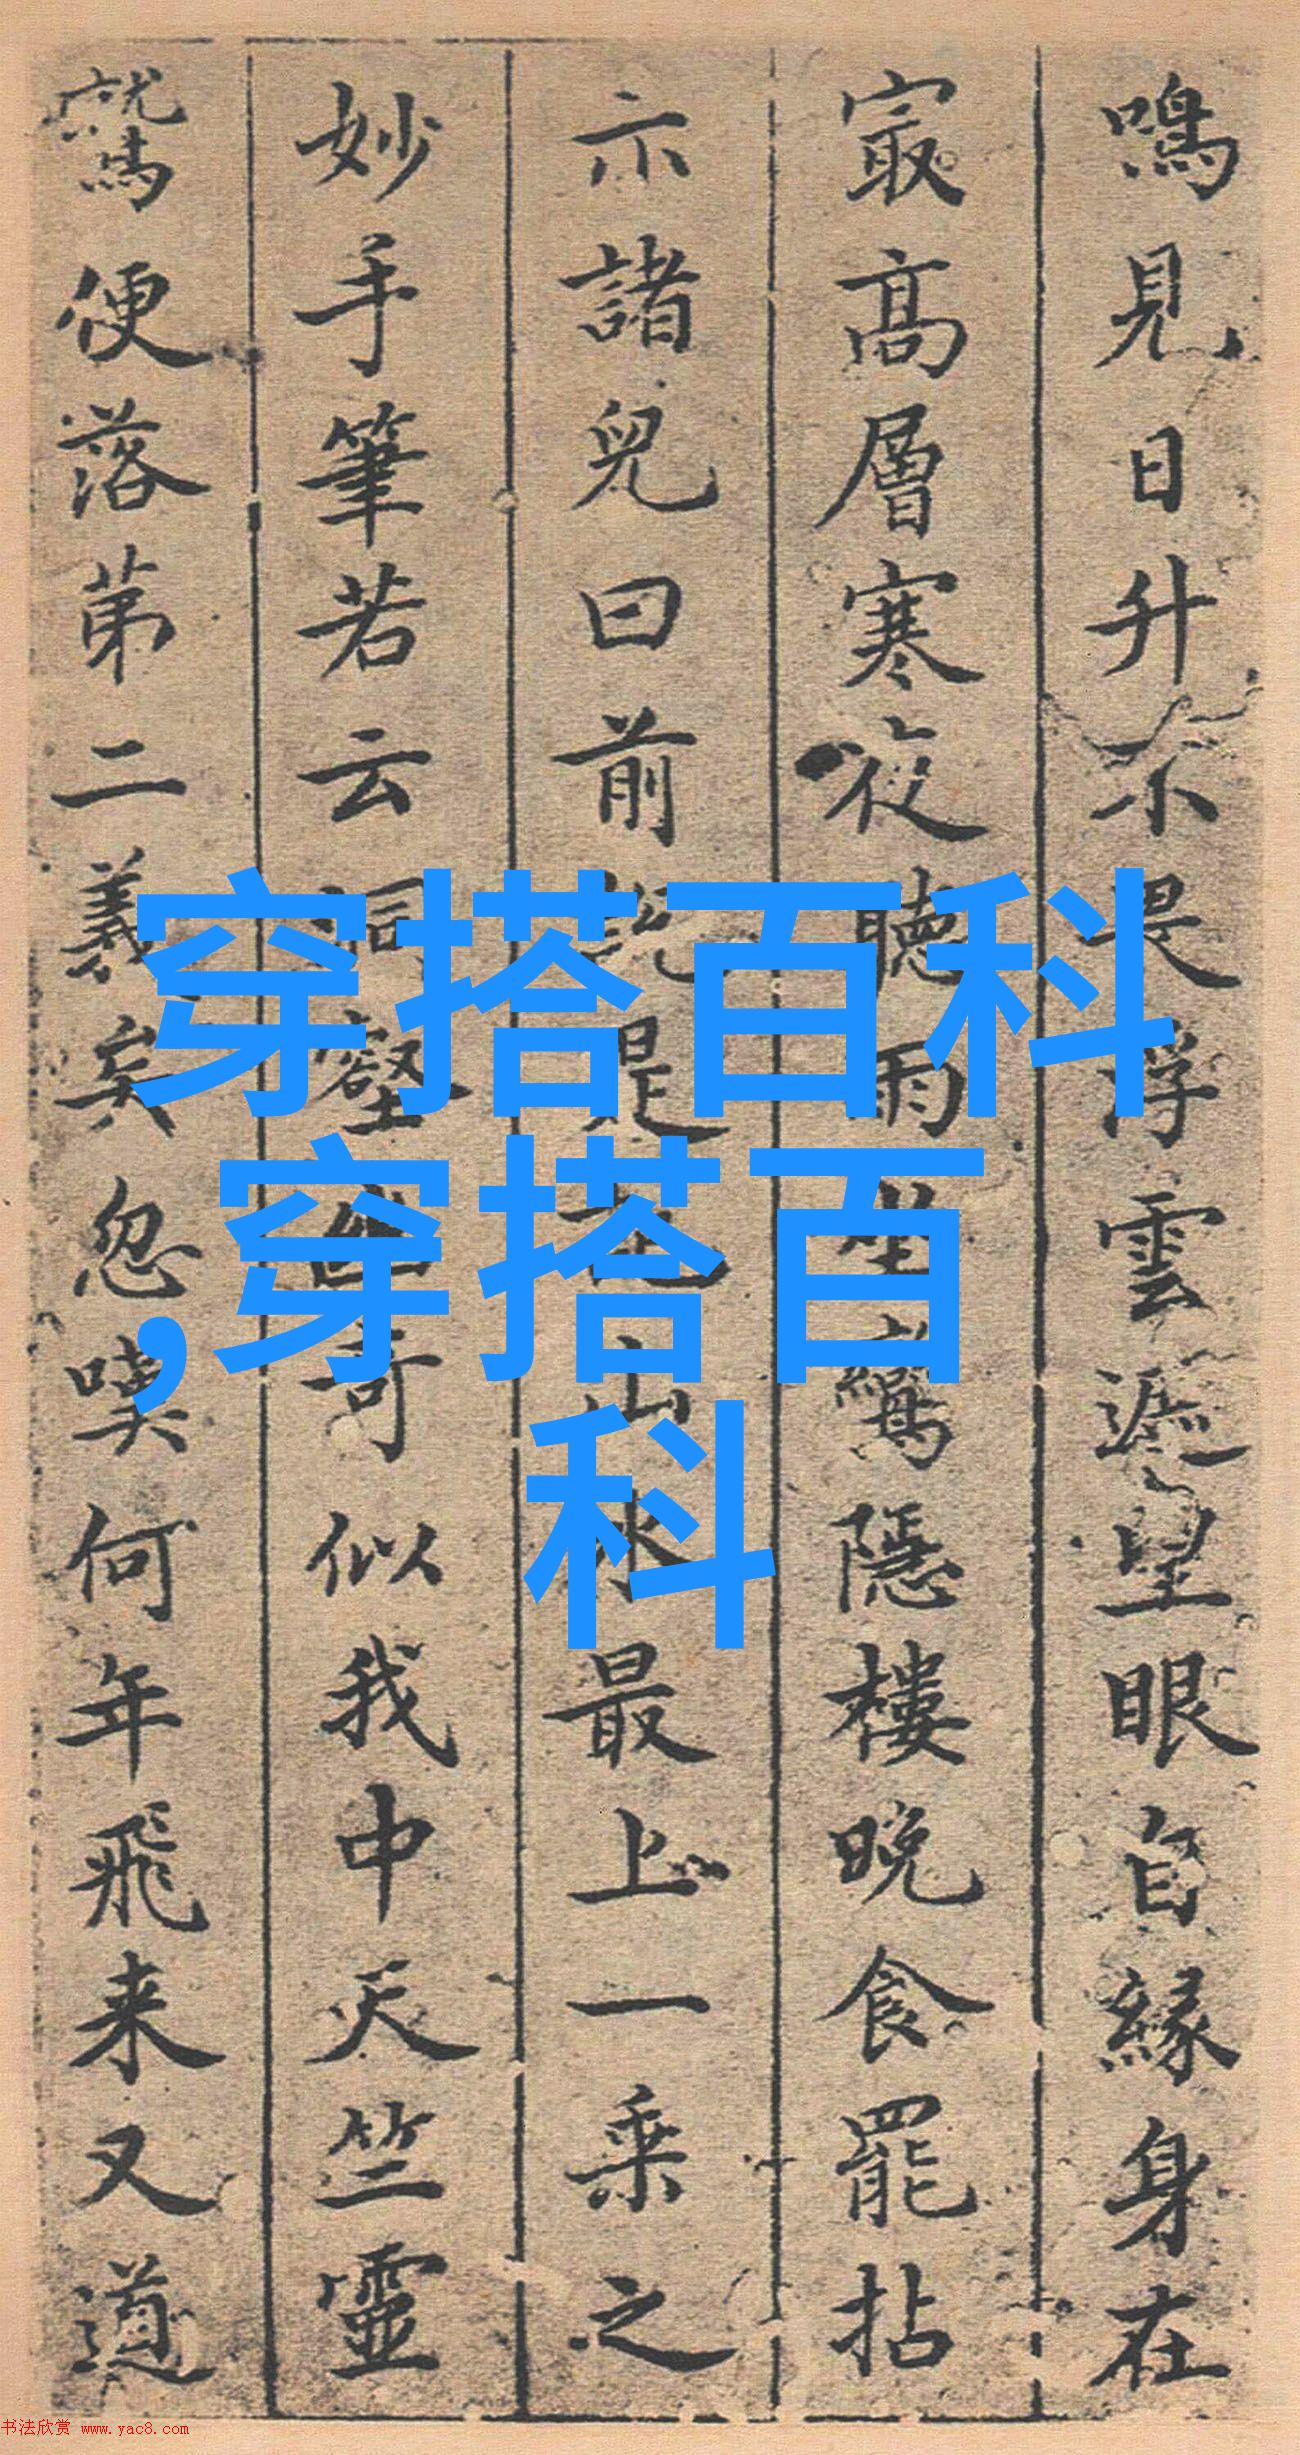 鳴見日升不畏浮雲遮望眼自緣身在
㝡高層寒夜聴雨隱樓晚食罷拈
示諸兒曰前是山水最上一乘之
妙手筆若云洞壑幽奇似我中天竺靈
鷲便落苐二義矣忽嘆何年飛来又道
穿搭百科
,穿搭百
科
书法欣赏 www.yac8.com